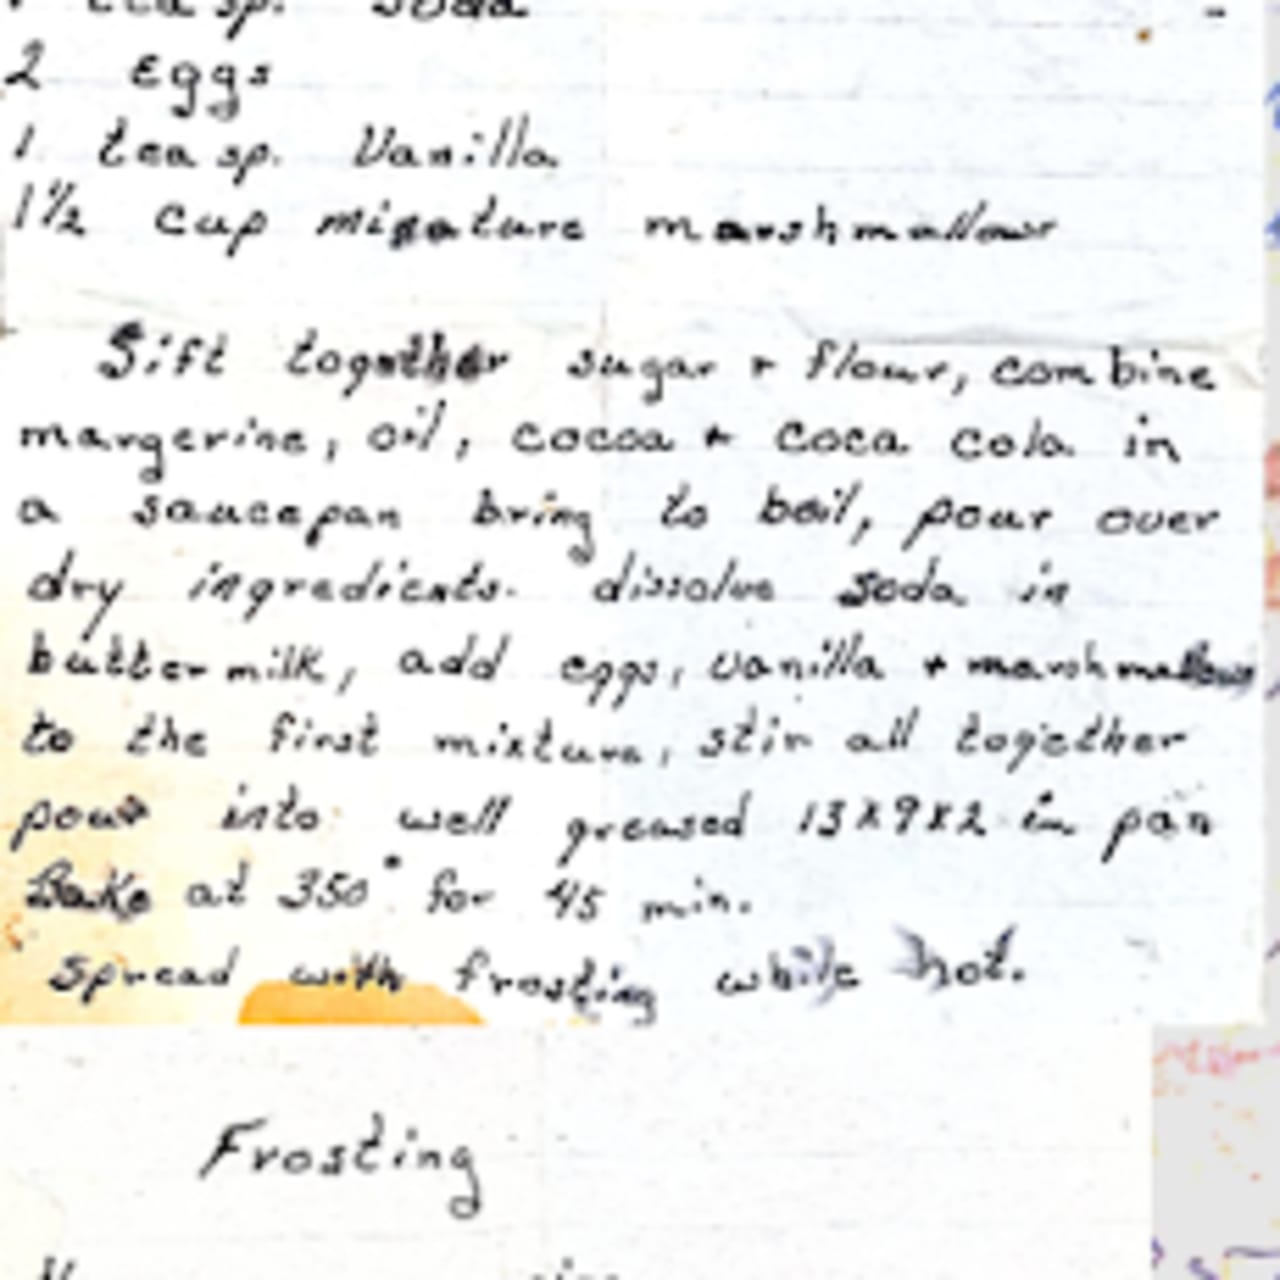 teasp. soda
2 Eggs
1 teasp. Vanilla
1½ cup minature marshmallows
Sift together sugar + flour, combine
margerine, oil, cocoa + coca cola in
a saucepan bring to boil, pour over
dry ingredients. dissolve soda in
buttermilk, add eggs, vanilla + marshmallows
to the first mixture, stir all together
pour into well greased 13x9x2 in pan
Bake at 350° for 45 min.
Spread with frosting while hot.
Frosting